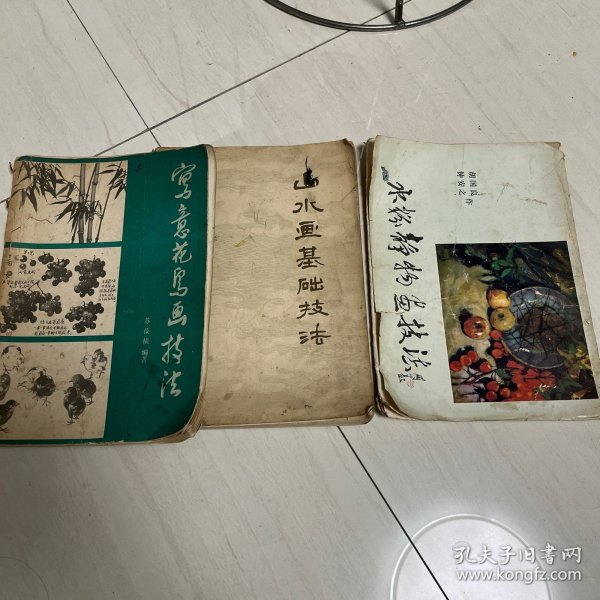 寫意花鸟画技法
苏葆桢 编著
山水画基础技法
水粉静物画技法
胡国良 作
钟安之
孔夫子旧书网
www.kongfz.com